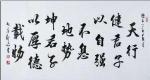 天行
健君子
以自强
不息
地势
坤君子
以厚德
載物